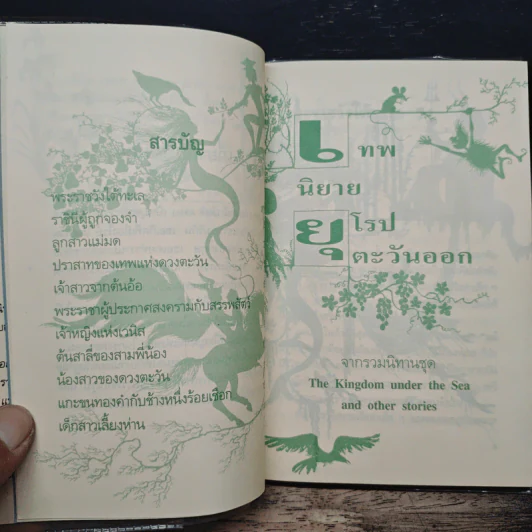 สารบัญ
พระราชวังใต้ทะเล
ราชินีผู้ถูกจองจำ
ลูกสาวแม่มด
ปราสาทของเทพแห่งดวงตะวัน
เจ้าสาวจากต้นอ้อ
พระราชาผู้ประกาศสงครามกับสรรพสัตว์
เจ้าหญิงแห่งเวนิส
ต้นสาลี่ของสามพี่น้อง
น้องสาวของดวงตะวัน
แกะขนทองคำกับช้างหนึ่งร้อยเชือก
เด็กสาวเลี้ยงห่าน
เทพ
นิยาย
ยุโรป
ตะวันออก
จากรวมนิทานชุด
The Kingdom under the Sea
and other stories